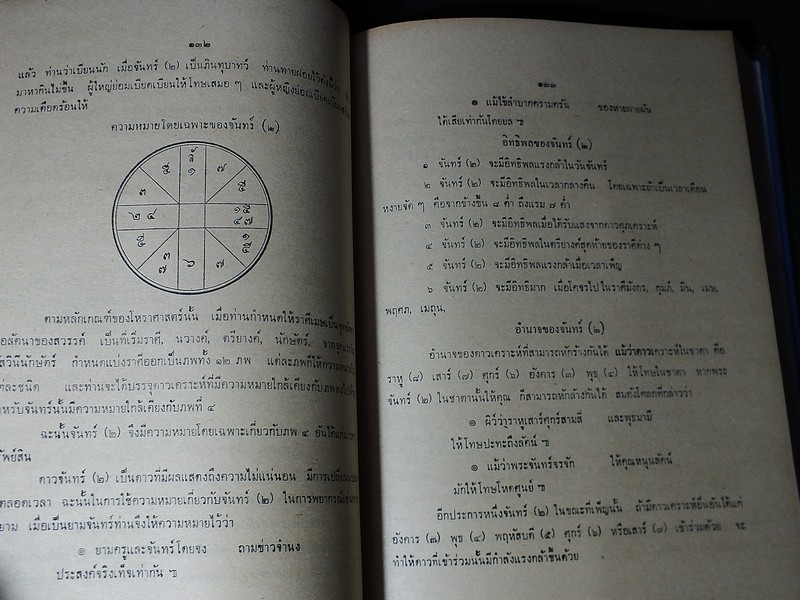 ๑๓๒
แล้ว ท่านว่าเบียนนัก เมื่อจันทร์ (๒) เป็นภินทุบาทว์ ท่านทายฝอยไว้
มาหากินไม่ขึ้น ผู้ใหญ่ย่อมเบียดเบียนให้โทษเสมอ ๆ และผู้หญิงย่อมเบียดเบียน
ความเดือดร้อนให้
ความหมายโดยเฉพาะของจันทร์ (๒)
ลั
๕ ๑ ๗
๓ ๕
๒ ๔ ๑ ๕
๔ ๗
๕ ๑
๓ ๗ ๖ ๗
ตามหลักเกณฑ์ของโหราศาสตร์นั้น เมื่อท่านกำหนดให้ราศีเมษเป็น
ลัคนาของสวรรค์ เป็นที่เริ่มราศี, นวางค์, ตรียางค์, นักษัตร์,
อัสวินีนักษัตร์ กำหนดแบ่งราศีออกเป็นภพทั้ง ๑๒ ภพ แต่ละภพก็ให้ความหมาย
ต่ละชนิด และท่านจะได้บรรจุดาวเคราะห์ที่มีความหมายใกล้เคียงกับภพลง
หรับจันทร์นั้นมีความหมายใกล้เคียงกับภพที่ ๔
ฉะนั้นจันทร์ (๒) จึงมีความหมายโดยเฉพาะเกี่ยวกับภพ ๔ อันได้แก่
รัพย์สิน
ดาวจันทร์ (๒) เป็นดาวที่มีผลแสดงถึงความไม่แน่นอน มีการเปลี่ยน
ตลอดเวลา ฉะนั้นในการใช้ความหมายเกี่ยวกับจันทร์ (๒) ในการพยากรณ์
ยาม เมื่อเป็นยามจันทร์ท่านจึงให้ความหมายไว้ว่า
๏ ยามครูและจันทร์โดยจง ถามข่าวจำนง
ประสงค์จริงเท็จเท่ากัน ฯ
๑๓๓
๏ แม้ไข้ลำบากครามครัน ของหายผายผัน
ได้เสียเท่ากันโดยยล ฯ
อิทธิพลของจันทร์ (๒)
๑ จันทร์ (๒) จะมีอิทธิพลแรงกล้าในวันจันทร์
๒ จันทร์ (๒) จะมีอิทธิพลในเวลากลางคืน โดยเฉพาะถ้าเป็นเวลาเดือน
หงายจัด ๆ คือจากข้างขึ้น ๘ ค่ำ ถึงแรม ๗ ค่ำ
๓ จันทร์ (๒) จะมีอิทธิพลเมื่อได้รับแสงจากดาวศุภเคราะห์
๔ จันทร์ (๒) จะมีอิทธิพลในตรียางค์สุดท้ายของราศีต่าง ๆ
๕ จันทร์ (๒) จะมีอิทธิพลแรงกล้าเมื่อเวลาเพ็ญ
๖ จันทร์ (๒) จะมีอิทธิมาก เมื่อโคจรไปในราศีมังกร, กุมภ์, มีน, เมษ,
พฤศภ, เมถุน,
อำนาจของจันทร์ (๒)
อำนาจของดาวเคราะห์ที่สามารถหักร้างกันได้ แม้ว่าดาวเคราะห์ในชาตา คือ
ราหู (๘) เสาร์ (๗) ศุกร์ (๖) อังคาร (๓) พุธ (๔) ให้โทษในชาตา หากพระ
จันทร์ (๒) ในชาตานั้นให้คุณ ก็สามารถหักล้างกันได้ สมดังโคลกที่กล่าวว่า
๏ ผิว์ว่าราหูเสาร์ศุกร์สามสี่ และพุธมามี
ให้โทษปะทะถึงลัคน์ ฯ
๏ แม้ว่าพระจันทร์จรจัก ให้คุณหนุนลัคน์
มักให้โทษโหดศูนย์ ฯ
อีกประการหนึ่งจันทร์ (๒) ในขณะที่เพ็ญนั้น ถ้ามีดาวเคราะห์ยืนอันได้แก่
อังคาร (๓) พุธ (๔) พฤหัสบดี (๕) ศุกร์ (๖) หรือเสาร์ (๗) เข้าร่วมด้วย จะ
ทำให้ดาวที่เข้าร่วมนั้นมีกำลังแรงกล้าขึ้นด้วย